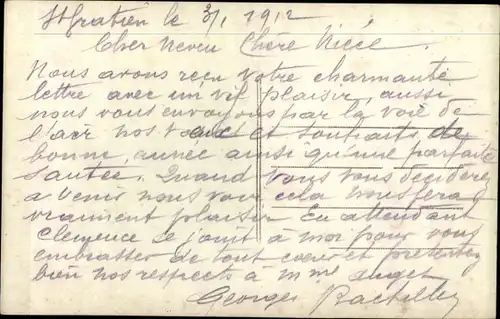 St Gratien le 3/1 1912
Cher Neveu Chère Nièce.
Nous avons reçu votre charmante
lettre avec un vif plaisir, aussi
nous vous envoyons par la voie de
l'air nos vœux et souhaits de
bonne année ainsi qu'une parfaite
santée. Quand vous vous deciderez
a venir nous voir cela nous fera
vraiment plaisir En attendant
Clemence se joint à moi pour vous
embrasser de tout cœur et presentez
bien nos respects à Mme
Georges